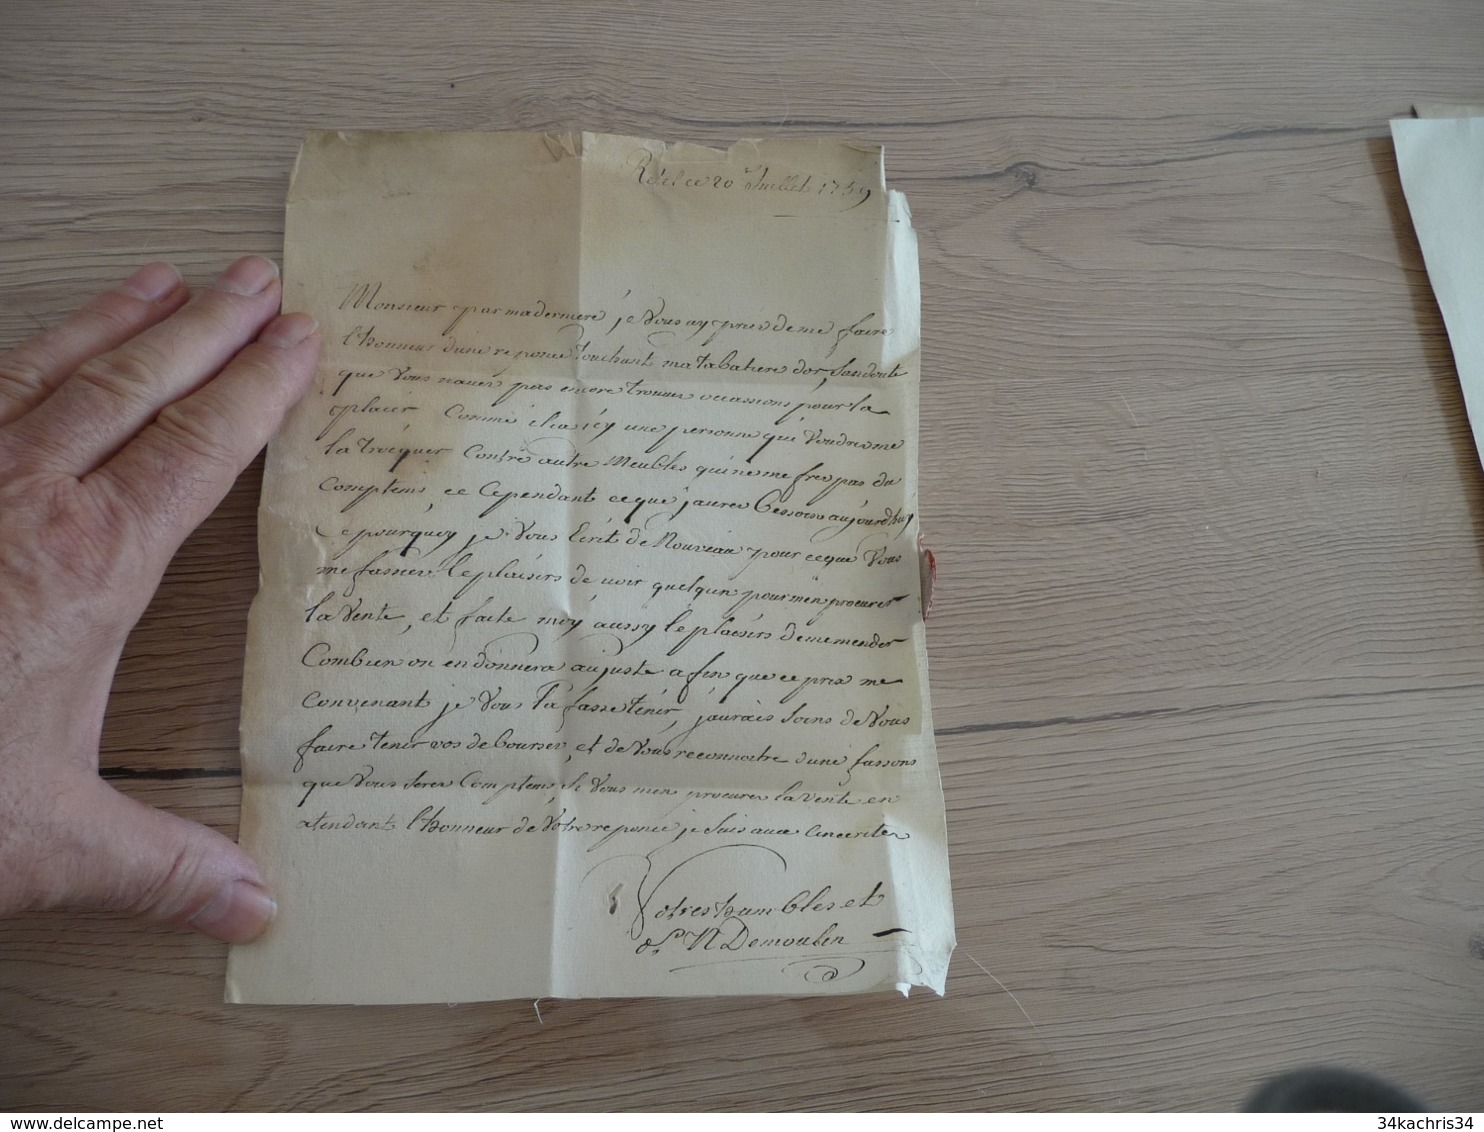 ce 20 Juillet 1759
Monsieur par maderniere je Vous ay priés deme faire
l'honneur d'une reponce Touchant matabatiere dor, Sandoute
que Vous naues pas encore trouues occassions pour la
placér Comme il ia icy une personne qui Voudres me
la troèquer Contre autre Meubles qui ne me fres pas du
Comptems, et Cependant ce que j'aures Bessoins aujourdhuy
Ce pourquoy je Vous Ecrit de Nouveau pour ceque Vous
me fassies le plaisirs de uoir quelqun pour mén procurer
la Vente, et faite moy aussy le plaisirs dememender
Combien on en donnera aujuste afin que ce prix me
Convenant je Vous la fasse tenir, jaurais soins de Vous
faire tenir vos deboursés, et de Vous reconnoitre dune fassons
que Vous seres Comptems, Si Vous men procures la Vente en
atendant l'honneur de Votre reponce je suis aux Cinceriter
Votres humbles et
ob N Demoulin
34kachris34